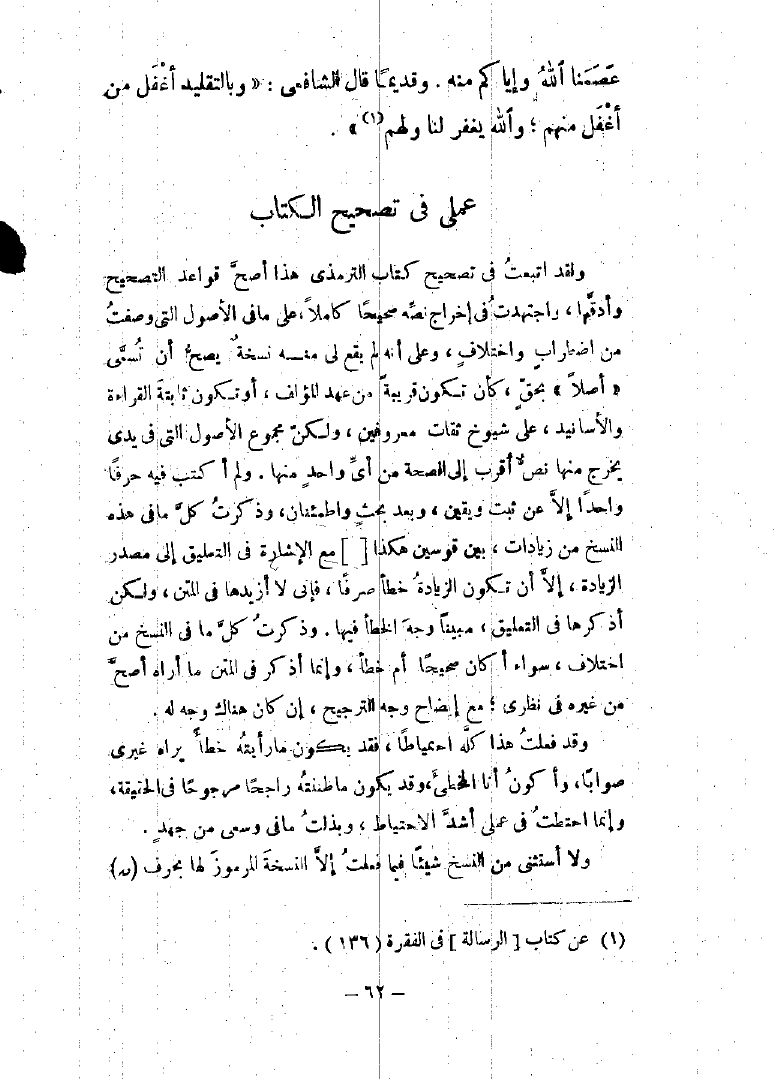 عَصَمَنا ٱللهُ وإياكم منه . وقديمًا قال الشافعى : « وبالتقليد أغْفَل من
أغْفَل منهم ؛ وٱلله يغفر لنا ولهم (١) » .
عملى فى تصحيح الكتاب
ولقد اتبعتُ فى تصحيح كتاب الترمذى هذا أصحَّ قواعد التصحيح
وأدقَّها ، واجتهدتُ فى إخراج نصِّه صحيحًا كاملاً ، على مافى الأصول التى وصفتُ
من اضطرابٍ واختلافٍ ، وعلى أنه لم يقع لى منه نسخةٌ يصحُّ أن تُسمَّى
« أصلاً » بحقٍّ ، كأن تكون قريبةً من عهد المؤلف ، أو تكون ثابتةَ القراءة
والأسانيد ، على شيوخ ثقات معروفين ، ولكنّ مجموع الأصول التى فى يدى
يخرج منها نصٌّ أقرب إلى الصحة من أىِّ واحدٍ منها . ولم أكتب فيه حرفًا
واحدًا إلاَّ عن ثبت ويقين ، وبعد بحثٍ واطمئنان ، وذكرتُ كلَّ مافى هذه
النسخ من زيادات ، بين قوسين هكذا [ ] مع الإشارة فى التعليق إلى مصدر
الزيادة ، إلاَّ أن تكون الزيادةُ خطأ صرفًا ، فإنى لا أزيدها فى المتن ، ولكن
أذكرها فى التعليق ، مبينًا وجهَ الخطأ فيها . وذكرتُ كلَّ ما فى النسخ من
اختلاف ، سواء أكان صحيحًا أم خطأ ، وإنما أذكر فى المتن ما أراه أصحَّ
من غيره فى نظرى ؛ مع إيضاح وجه الترجيح ، إن كان هناك وجه له .
وقد فعلتُ هذا كلَّه احتياطًا ، فقد يكون مارأيتُه خطأً يراه غيرى
صوابًا ، وأكونُ أنا المخطئَ ، وقد يكون ماظننتُه راجحًا مرجوحًا فى الحقيقة ،
وإنما احتطتُ فى عملى أشدَّ الاحتياط ، وبذلتُ مافى وسعى من جهدٍ .
ولا أستثنى من النسخ شيئًا فيما فعلتُ إلاَّ النسخةَ المرموزَ لها بحرف (ن)
(١) عن كتاب [ الرسالة ] فى الفقرة ( ١٣٦ ) .
— ٦٢ —